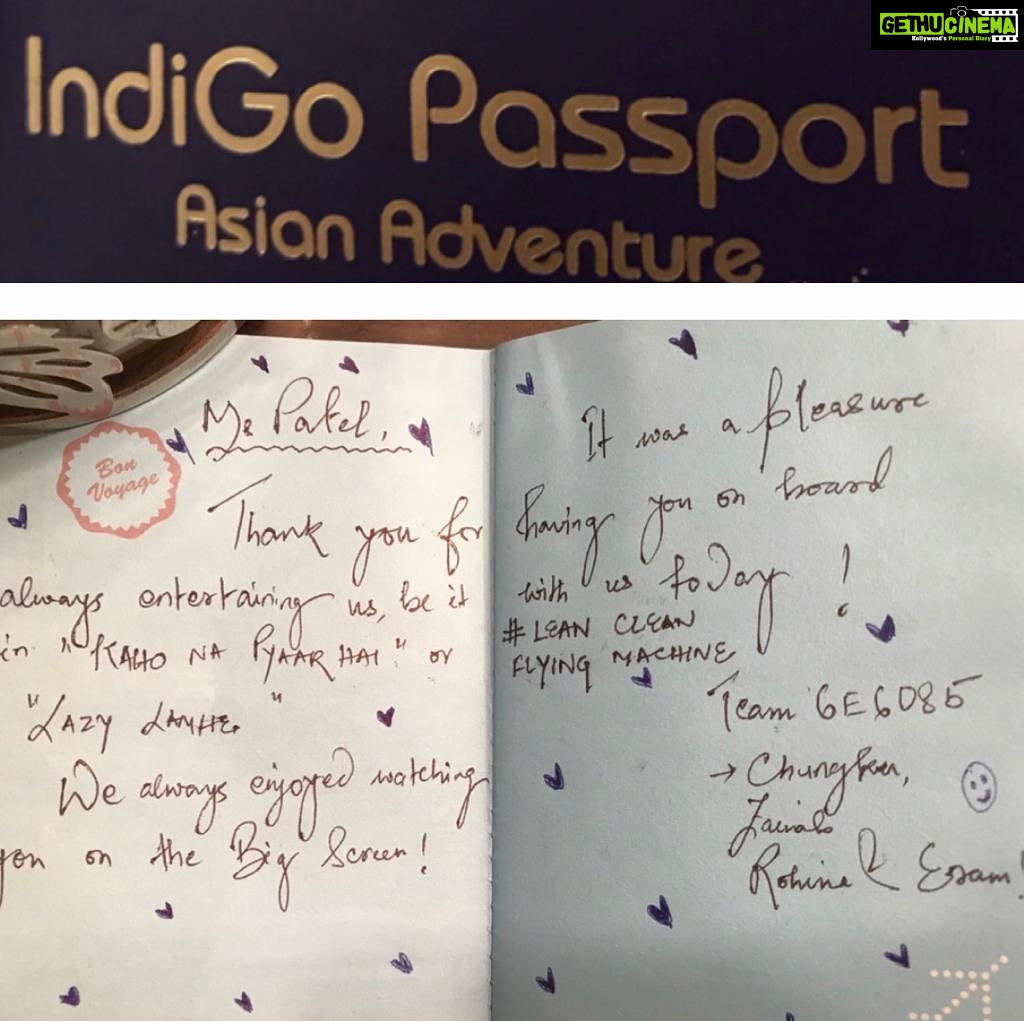 GETHUCINEMA
Kollywood's Personal Diary
IndiGo Passport
Asian Adventure
Ms Patel,
Bon
Voyage
Thank you for
always entertaining us, be it
in "KAHO NA PYAAR HAI" or
"LAZY LAMHE"
We always enjoyed watching
you on the Big Screen!
It was a pleasure
having you on board
with us today!
#LEAN CLEAN
FLYING MACHINE
Team 6E6085
→
Rohina &